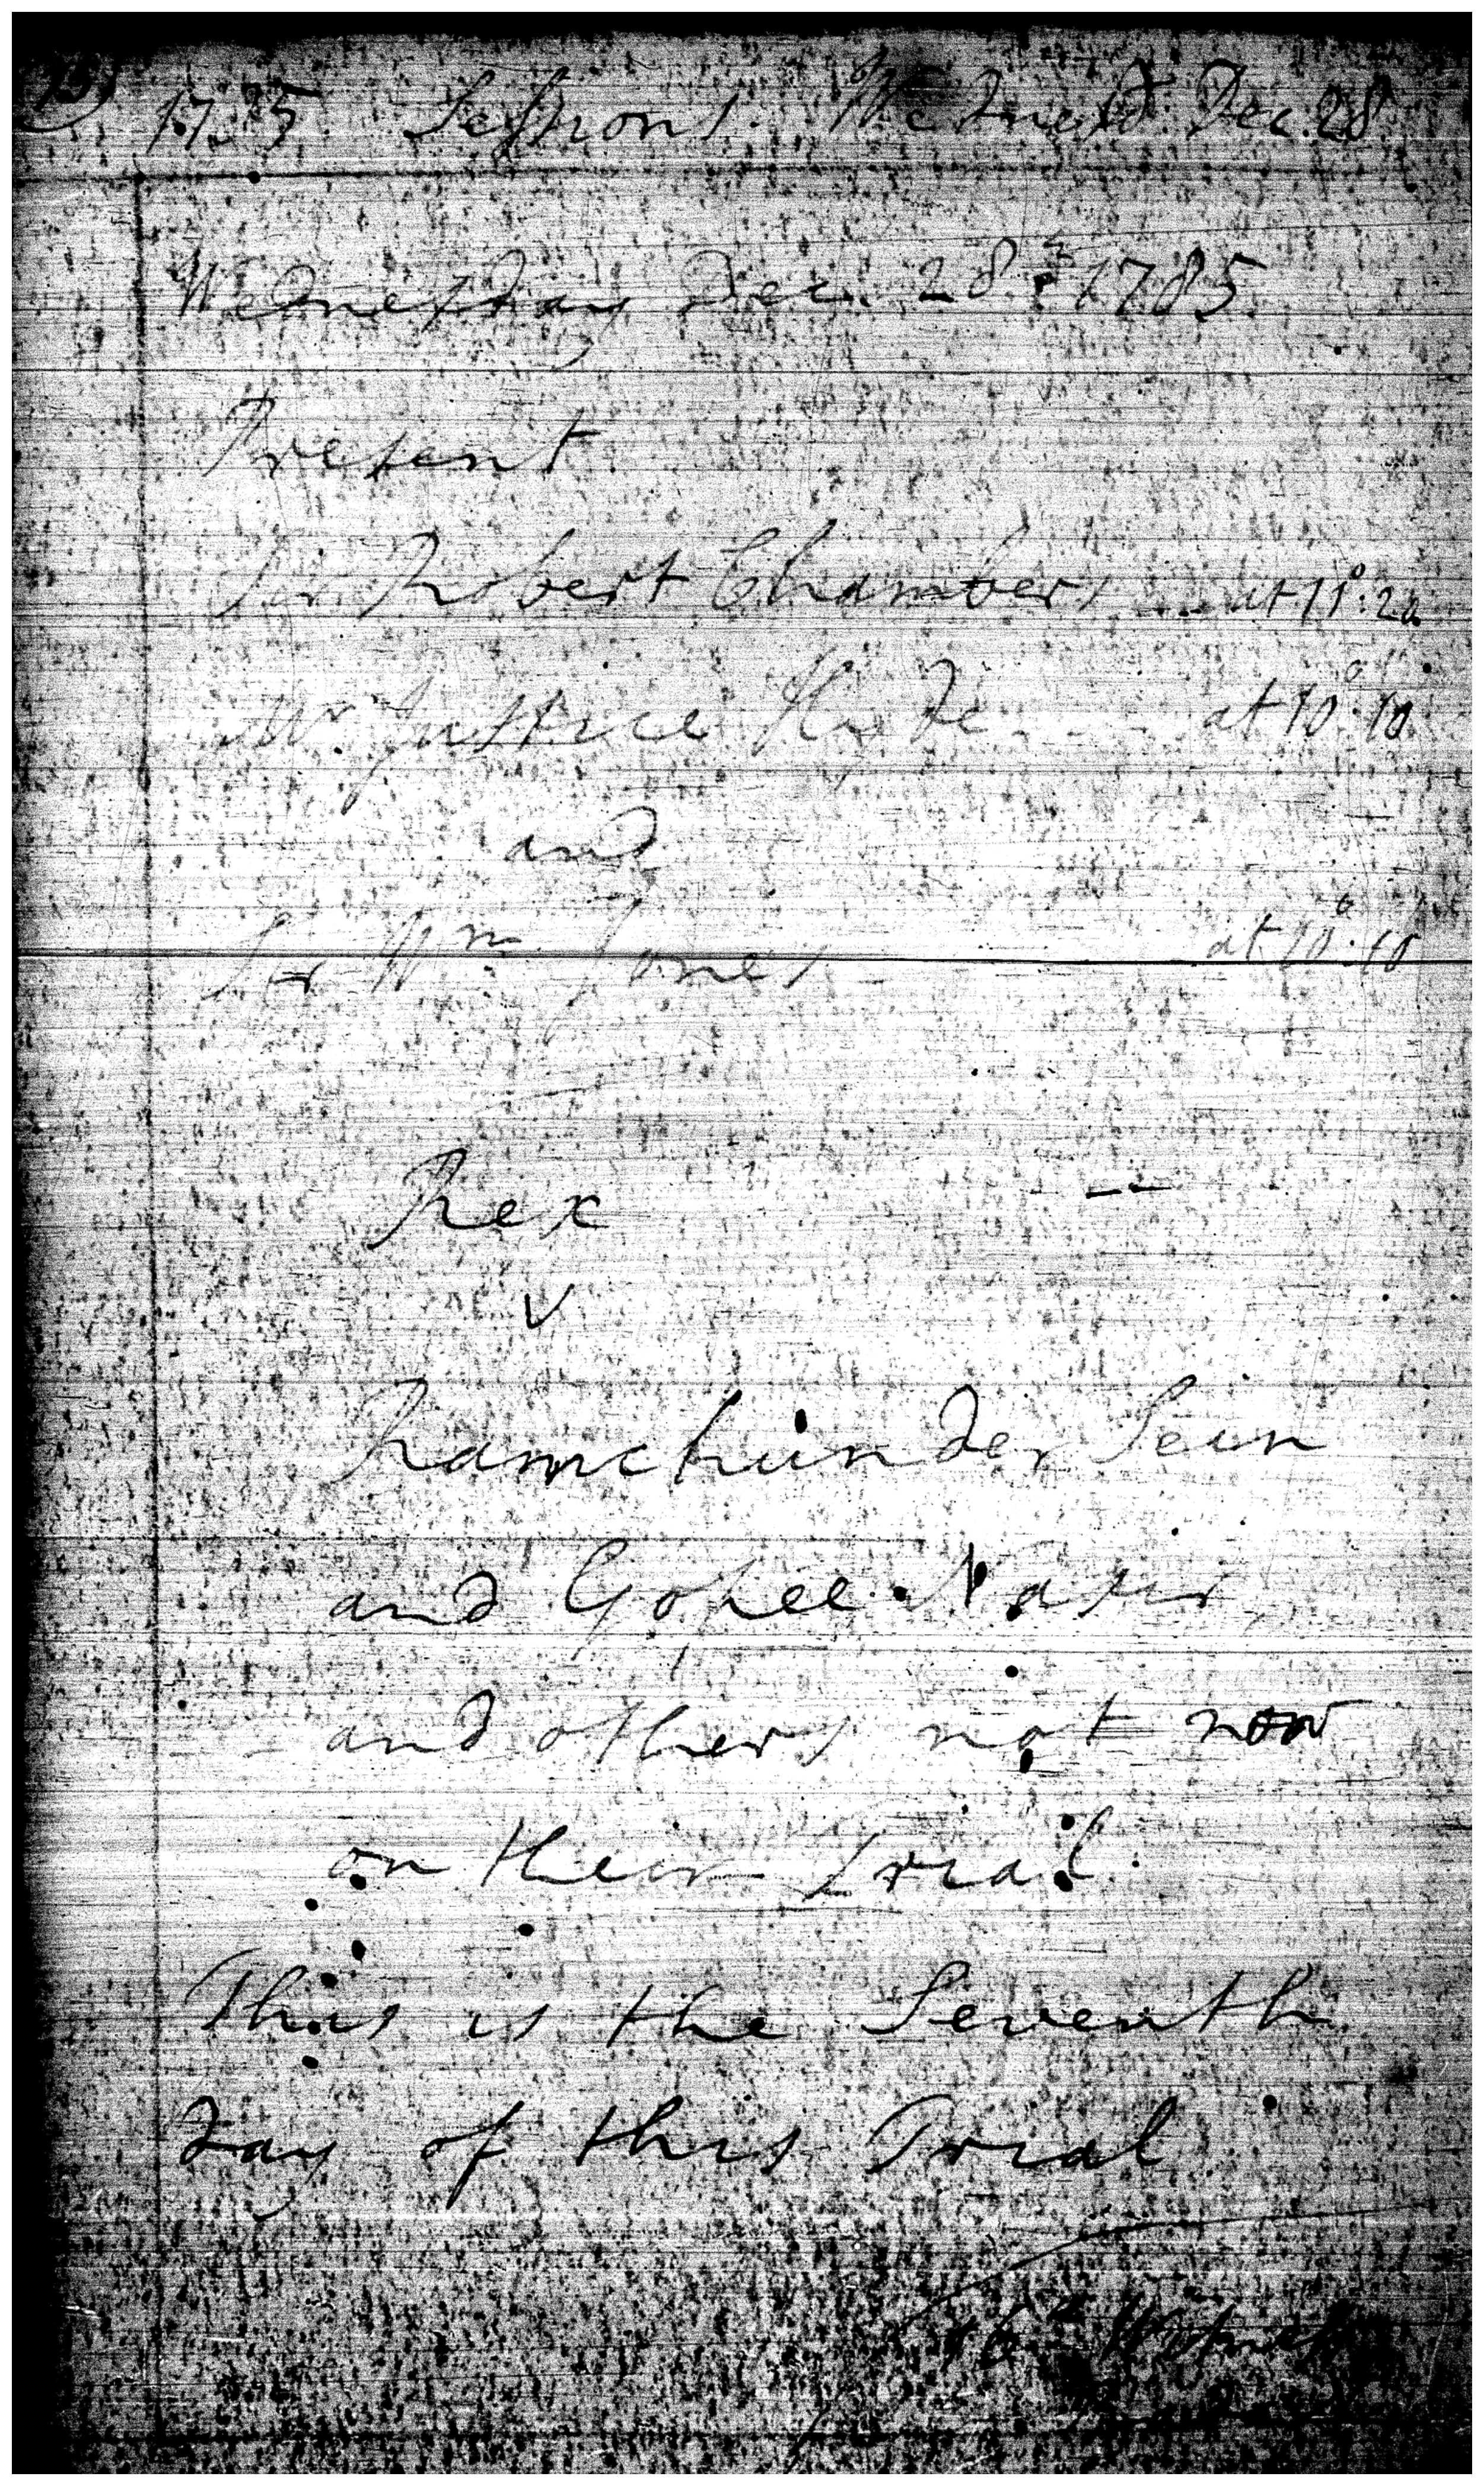 1785 Sessions. Wednesd. Dec. 28
Wednesday Dec. 28. 1785.
Present
Sir Robert Chambers at 11°:20
Mr. Justice Hyde at 10°:10
and
Sir Wm. Jones at 10°:10
Rex
v
Ramchunder Sein
and Gopee
and others not now
on their trial.
This is the Seventh
day of this Trial
Witness